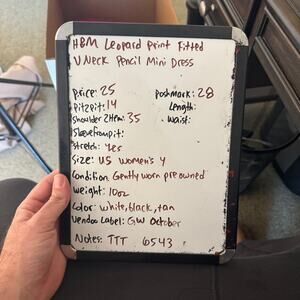 H&M Leopard Print Fitted
V Neck Pencil Mini Dress
price: 25 poshmark: 28
Pit2pit: 14 Length:
Shoulder 2Hem: 35 waist:
Sleevefrompit:
Stretch: Yes
Size: US Women's 4
Condition: Gently worn pre owned
Weight: 10oz
Color: white, black, tan
Vendoo Label: GW October
Notes: TTT 6543